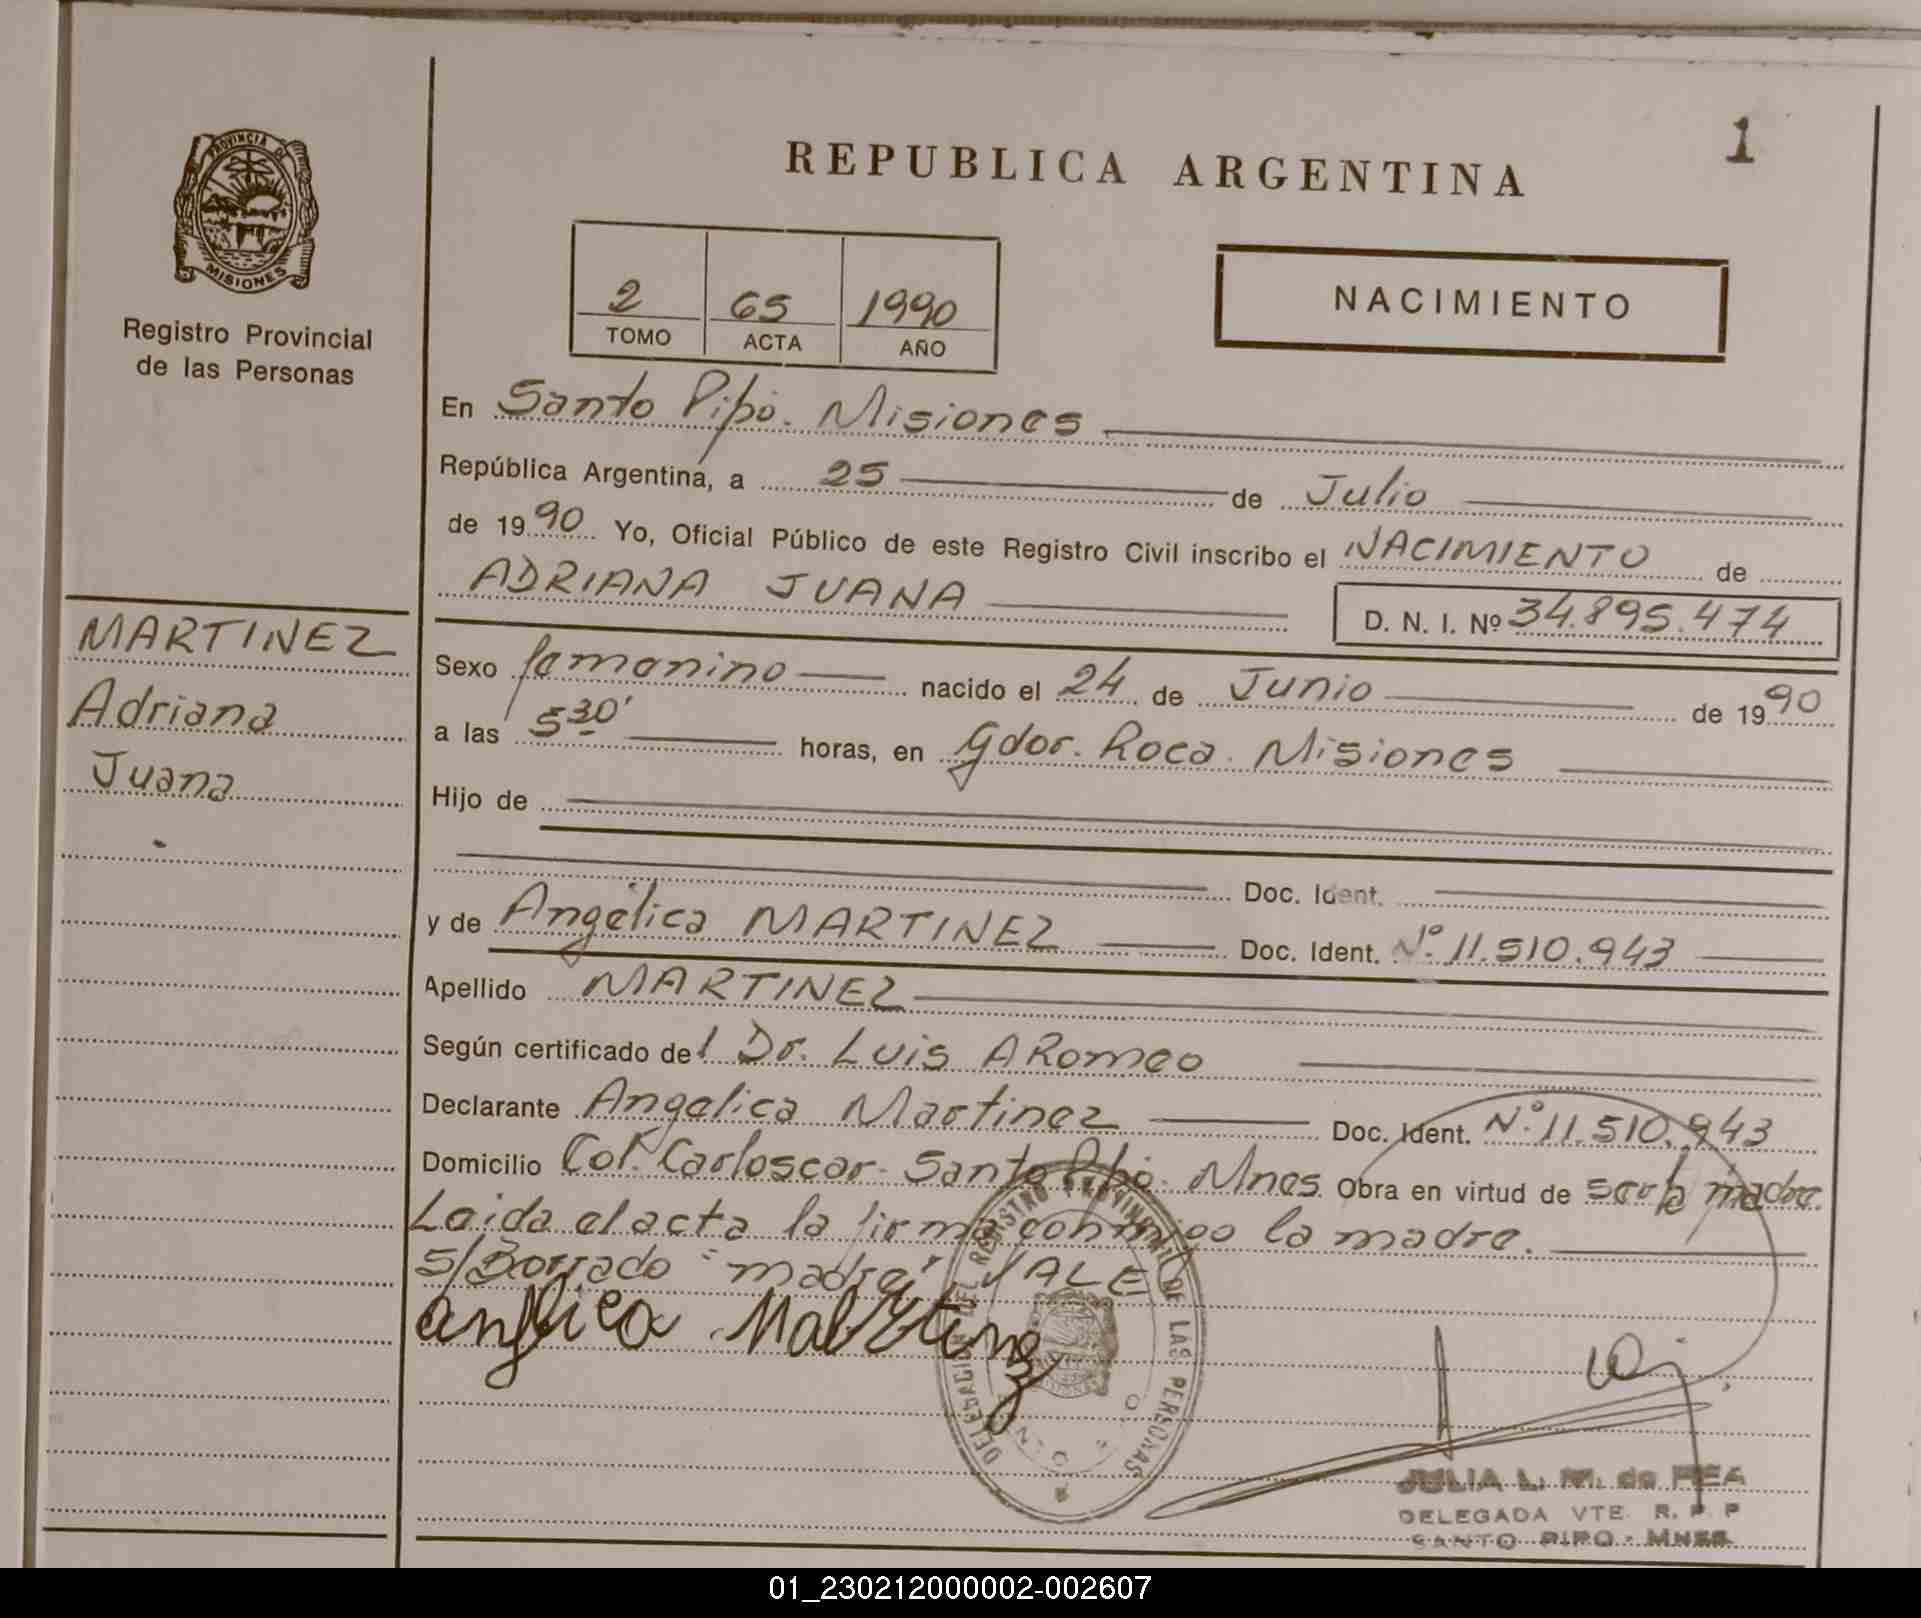 1
REPUBLICA ARGENTINA
PROVINCIA DE
MISIONES
Registro Provincial
de las Personas
2 65 1990
TOMO ACTA AÑO
NACIMIENTO
En Santo Pipó. Misiones
República Argentina, a 25 de Julio
de 1990 Yo, Oficial Público de este Registro Civil inscribo el NACIMIENTO de
ADRIANA JUANA
D. N. I. Nº 34.895.474
MARTINEZ
Adriana
Juana
Sexo femenino nacido el 24 de Junio de 1990
a las 5 30' horas, en Gdor. Roca. Misiones
Hijo de
Doc. Ident.
y de Angélica MARTINEZ Doc. Ident. Nº 11.510.943
Apellido MARTINEZ
Según certificado del Dr. Luis A Romeo
Declarante Angelica Martinez Doc. Ident. Nº 11.510.943
Domicilio Col. Santo Pipó. Mnes. Obra en virtud de ser la madre.
Leida el acta la firma conmigo la madre.
S/Borrado "madre" VALE
Martinez
DELEGACION DEL REGISTRO PROVINCIAL DE LAS PERSONAS
JULIA L. M. de REA
DELEGADA VTE. R. P. P
SANTO PIPO - MNES.
01_230212000002-002607